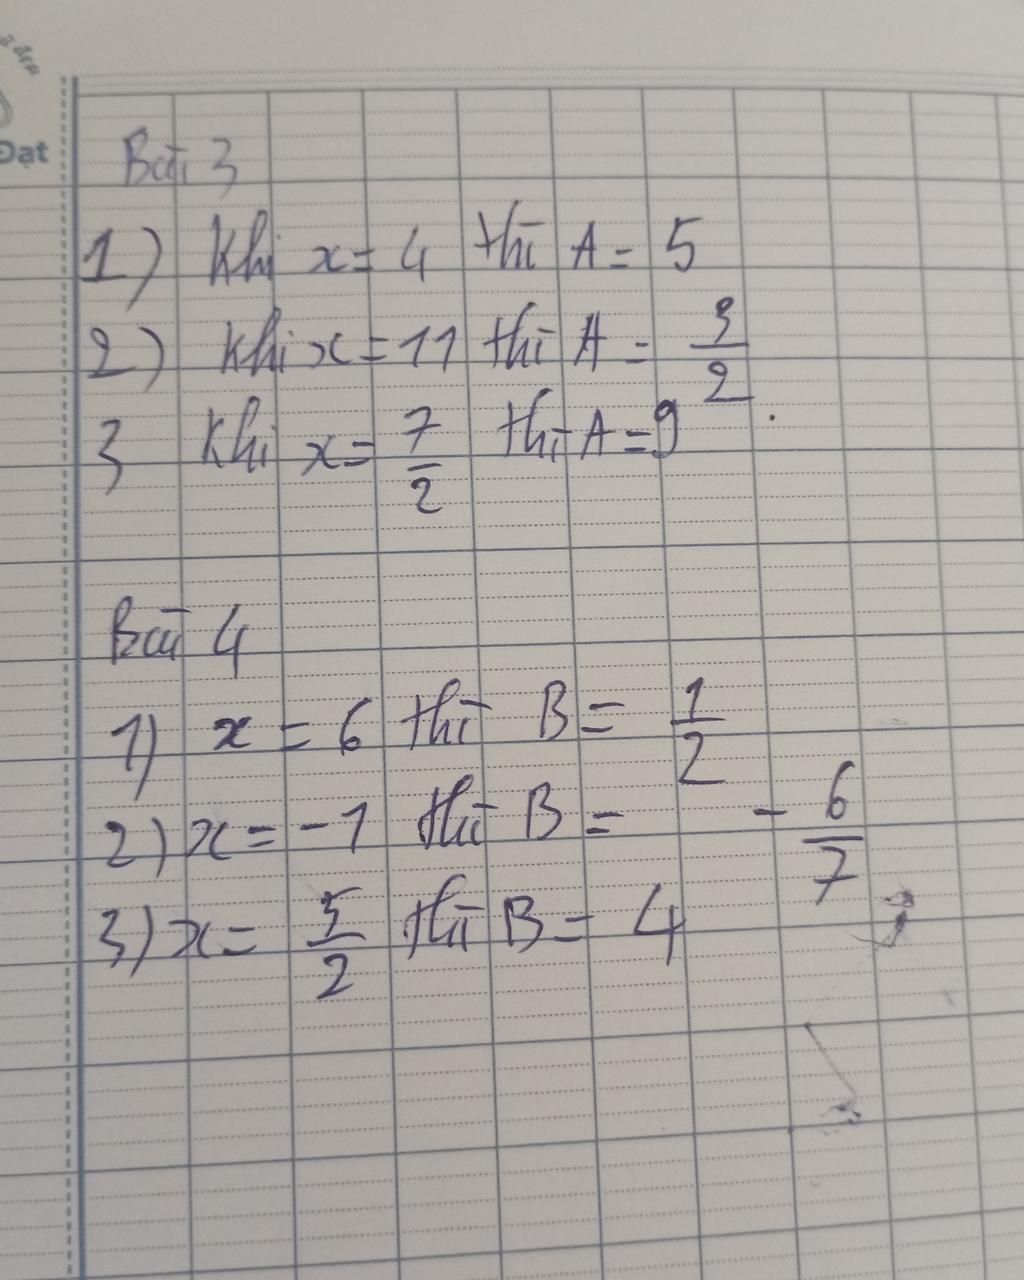 Đạt
Bài 3
1) Khi x = 4 thì A = 5
2) Khi x = 11 thì A = 3/2
3 Khi x = 7/2 thì A = 9
Bài 4
1) x = 6 thì B = 1/2
2) x = -1 thì B = - 6/7
3) x = 5/2 thì B = 4